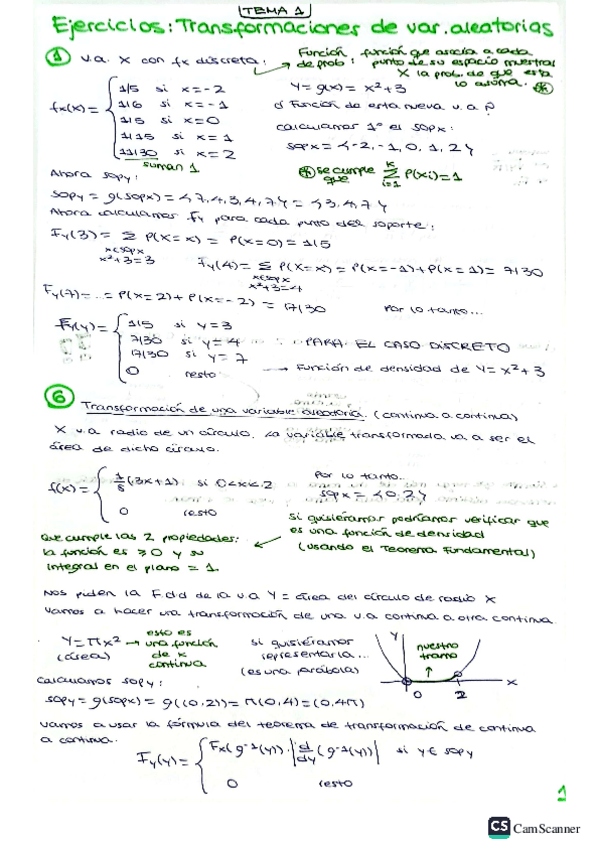 TEMA 1
Ejercicios: Transformaciones de var. aleatorias
1 v.a. X con fx discreta: → Función de prob: función que asocia a cada punto de su espacio muestral X la prob. de que esta lo asuma. *
fx(x) = { 1/5 si x=-2
1/6 si x=-1
1/5 si x=0
1/15 si x=1
11/30 si x=2
suman 1
Y = g(x) = x²+3
¿Función de esta nueva v.a?
calculamos 1º el sopx:
sopx = {-2, -1, 0, 1, 2}
* se cumple que Σ P(xi)=1
k
i=1
Ahora sopy:
sopy = g(sopx) = {7,4,3,4,7} = {3,4,7}
Ahora calculamos Fy para cada punto del soporte:
Fy(3) = Σ P(X=x) = P(x=0) = 1/5
x∈sopx
x²+3=3
Fy(4) = Σ P(X=x) = P(x=-1)+P(x=1) = 7/30
x∈sopx
x²+3=4
Fy(7) = ... = P(x=2)+P(x=-2) = 17/30
Por lo tanto...
Fy(y) = { 1/5 si y=3
7/30 si y=4 PARA EL CASO DISCRETO
17/30 si y=7
0 resto → Función de densidad de Y=x²+3
6 Transformación de una variable aleatoria. (continua a continua)
X v.a radio de un círculo. La variable transformada va a ser el
área de dicho círculo.
f(x) = { 1/8 (3x+1) si 0<x<2
0 resto
Por lo tanto...
sopx = {0,2}
si quisiéramos podríamos verificar que
es una función de densidad
(usando el Teorema Fundamental)
Que cumple las 2 propiedades:
la función es ≥0 y su
integral en el plano = 1.
Nos piden la F.d.d de la v.a Y = área del círculo de radio X
Vamos a hacer una transformación de una v.a continua a otra continua
Y=πx² → esto es una función de x continua
(área)
si quisiéramos
representarla...
(es una parábola)
Y
nuestro
tramo
0 2 X
Calculamos sopy:
sopy = g(sopx) = g((0,2)) = π(0,4) = (0,4π)
Vamos a usar la fórmula del teorema de transformación de continua
a continua.
Fy(y) = { Fx(g⁻¹(y)) · |d/dy (g⁻¹(y))| si y∈ sopy
0 resto
1
CS CamScanner